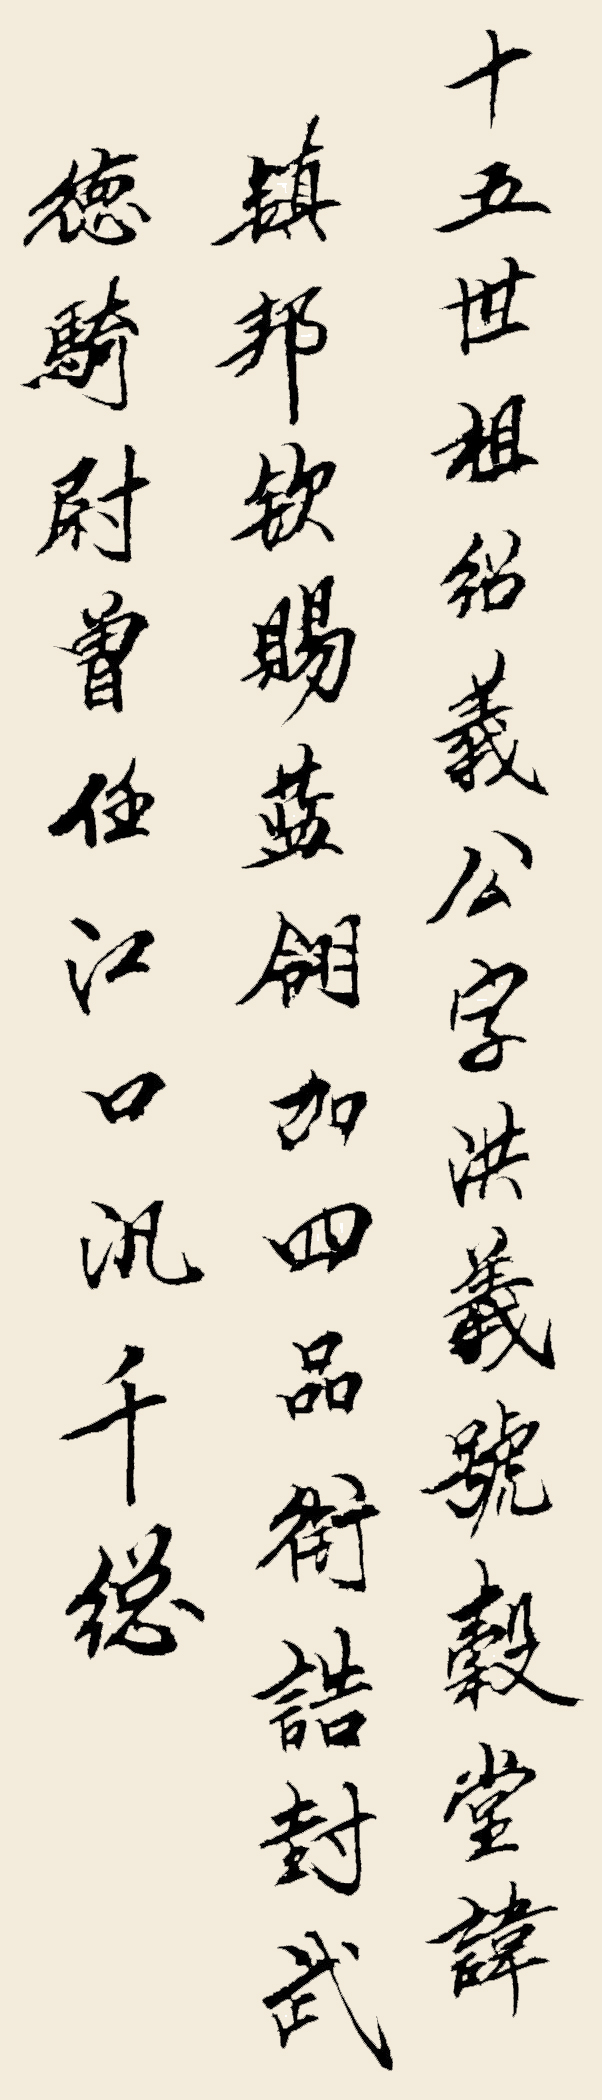 十五世祖紹義公字洪義號穀堂諱
鎮邦欽賜藍翎加四品銜誥封武
德騎尉曾任江口汛千總